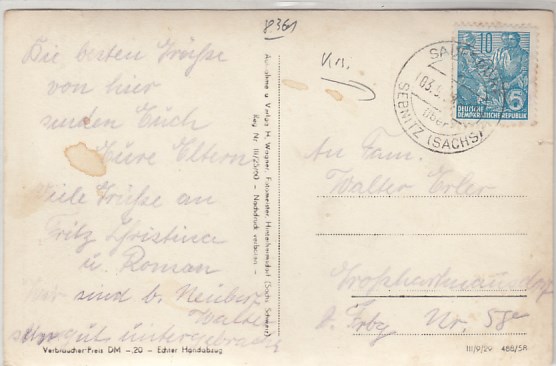 8361
Die besten Grüße
von hier
senden Euch
Eure Eltern
Viele Grüße an
Fritz Christina
u. Roman
Wir sind b. Neuberz
sehr gut untergebracht
Aufnahme u. Verlag H. Wagner, Fotomeister, Hinterhermsdorf (Sächs. Schweiz)
Reg. Nr. III/25/90 – Nachdruck verboten –
Verbraucher-Preis DM –.20 – Echter Handabzug
10
5
DEUTSCHE
DEMOKRATISCHE REPUBLIK
über
SEBNITZ (SACHS)
An Fam.
Walter Erler
Großhartmannsdorf
Nr. 58e
III/9/29 466/58